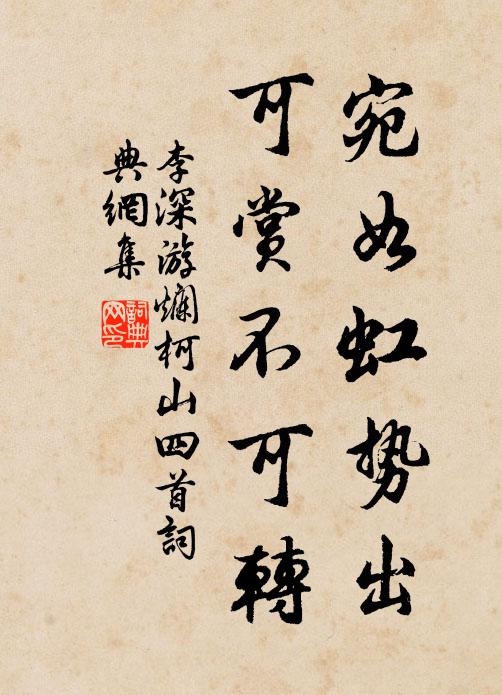 宛如虹势出
可賞不可轉
李深游爛柯山四首詞
典網集
詞典
网印